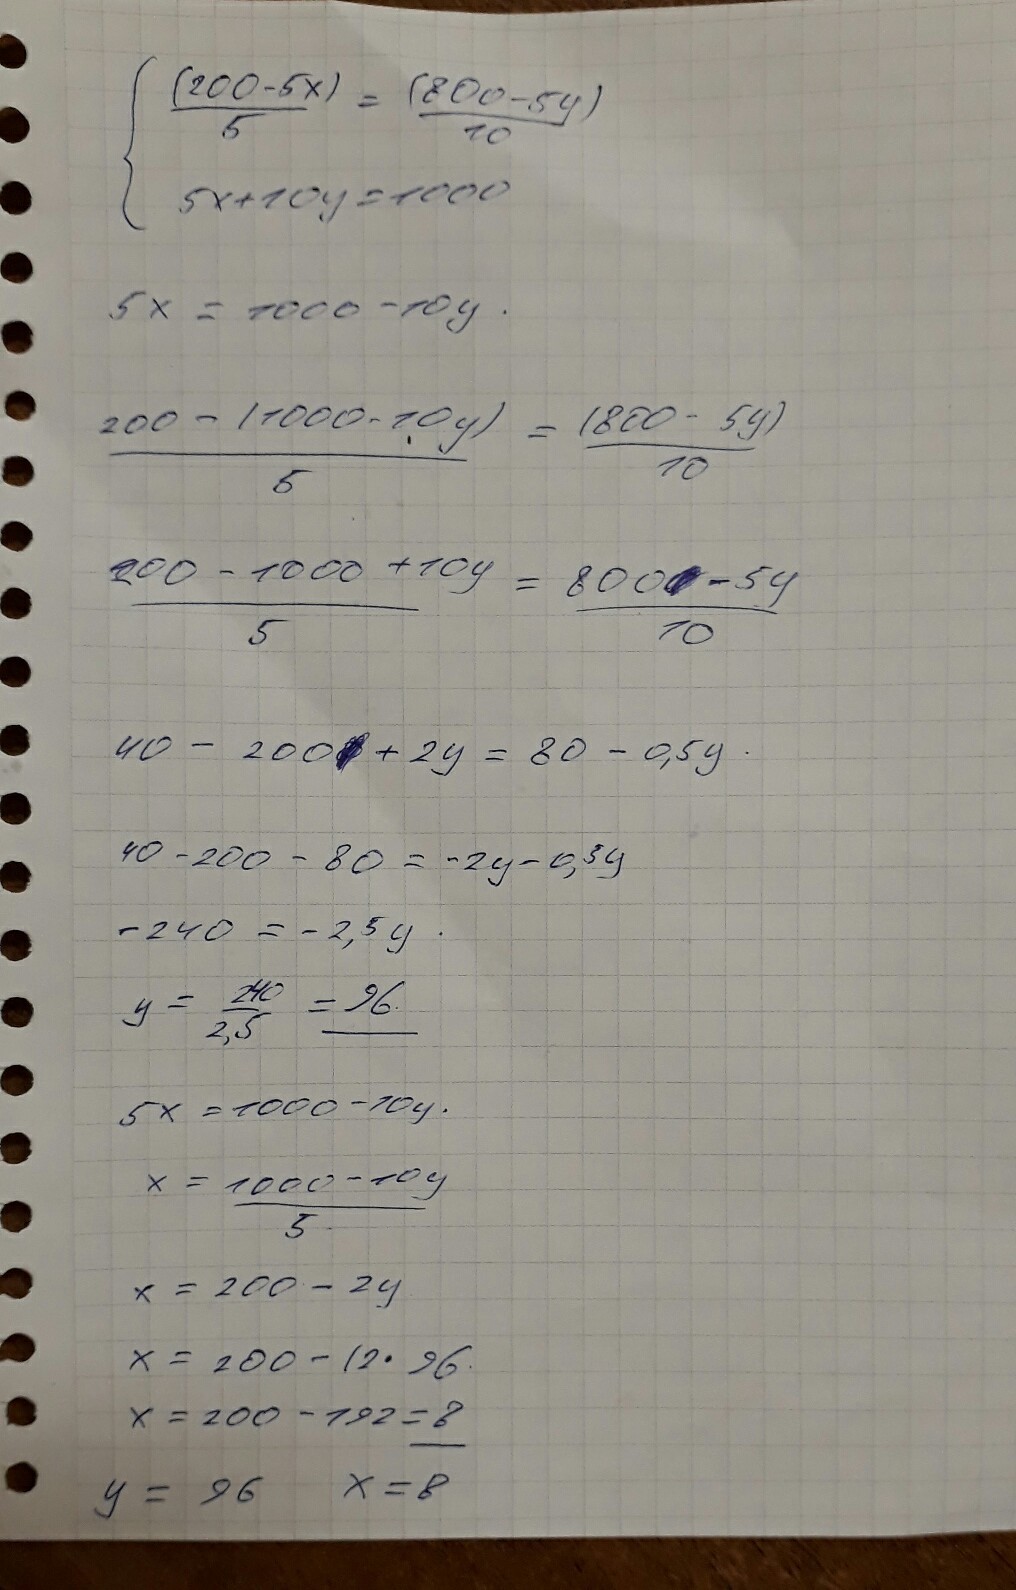 (200-5x)/5 = (800-5y)/10
5x+10y=1000
5x = 1000-10y.
200-(1000-10y)/5 = (800-5y)/10
200-1000+10y/5 = 800-5y/10
40-200+2y=80-0,5y.
40-200-80=-2y-0,5y
-240=-2,5y.
y=240/2,5=96.
5x=1000-10y.
x=1000-10y/5
x=200-2y
x=200-(2·96.
x=200-192=8
y=96 x=8